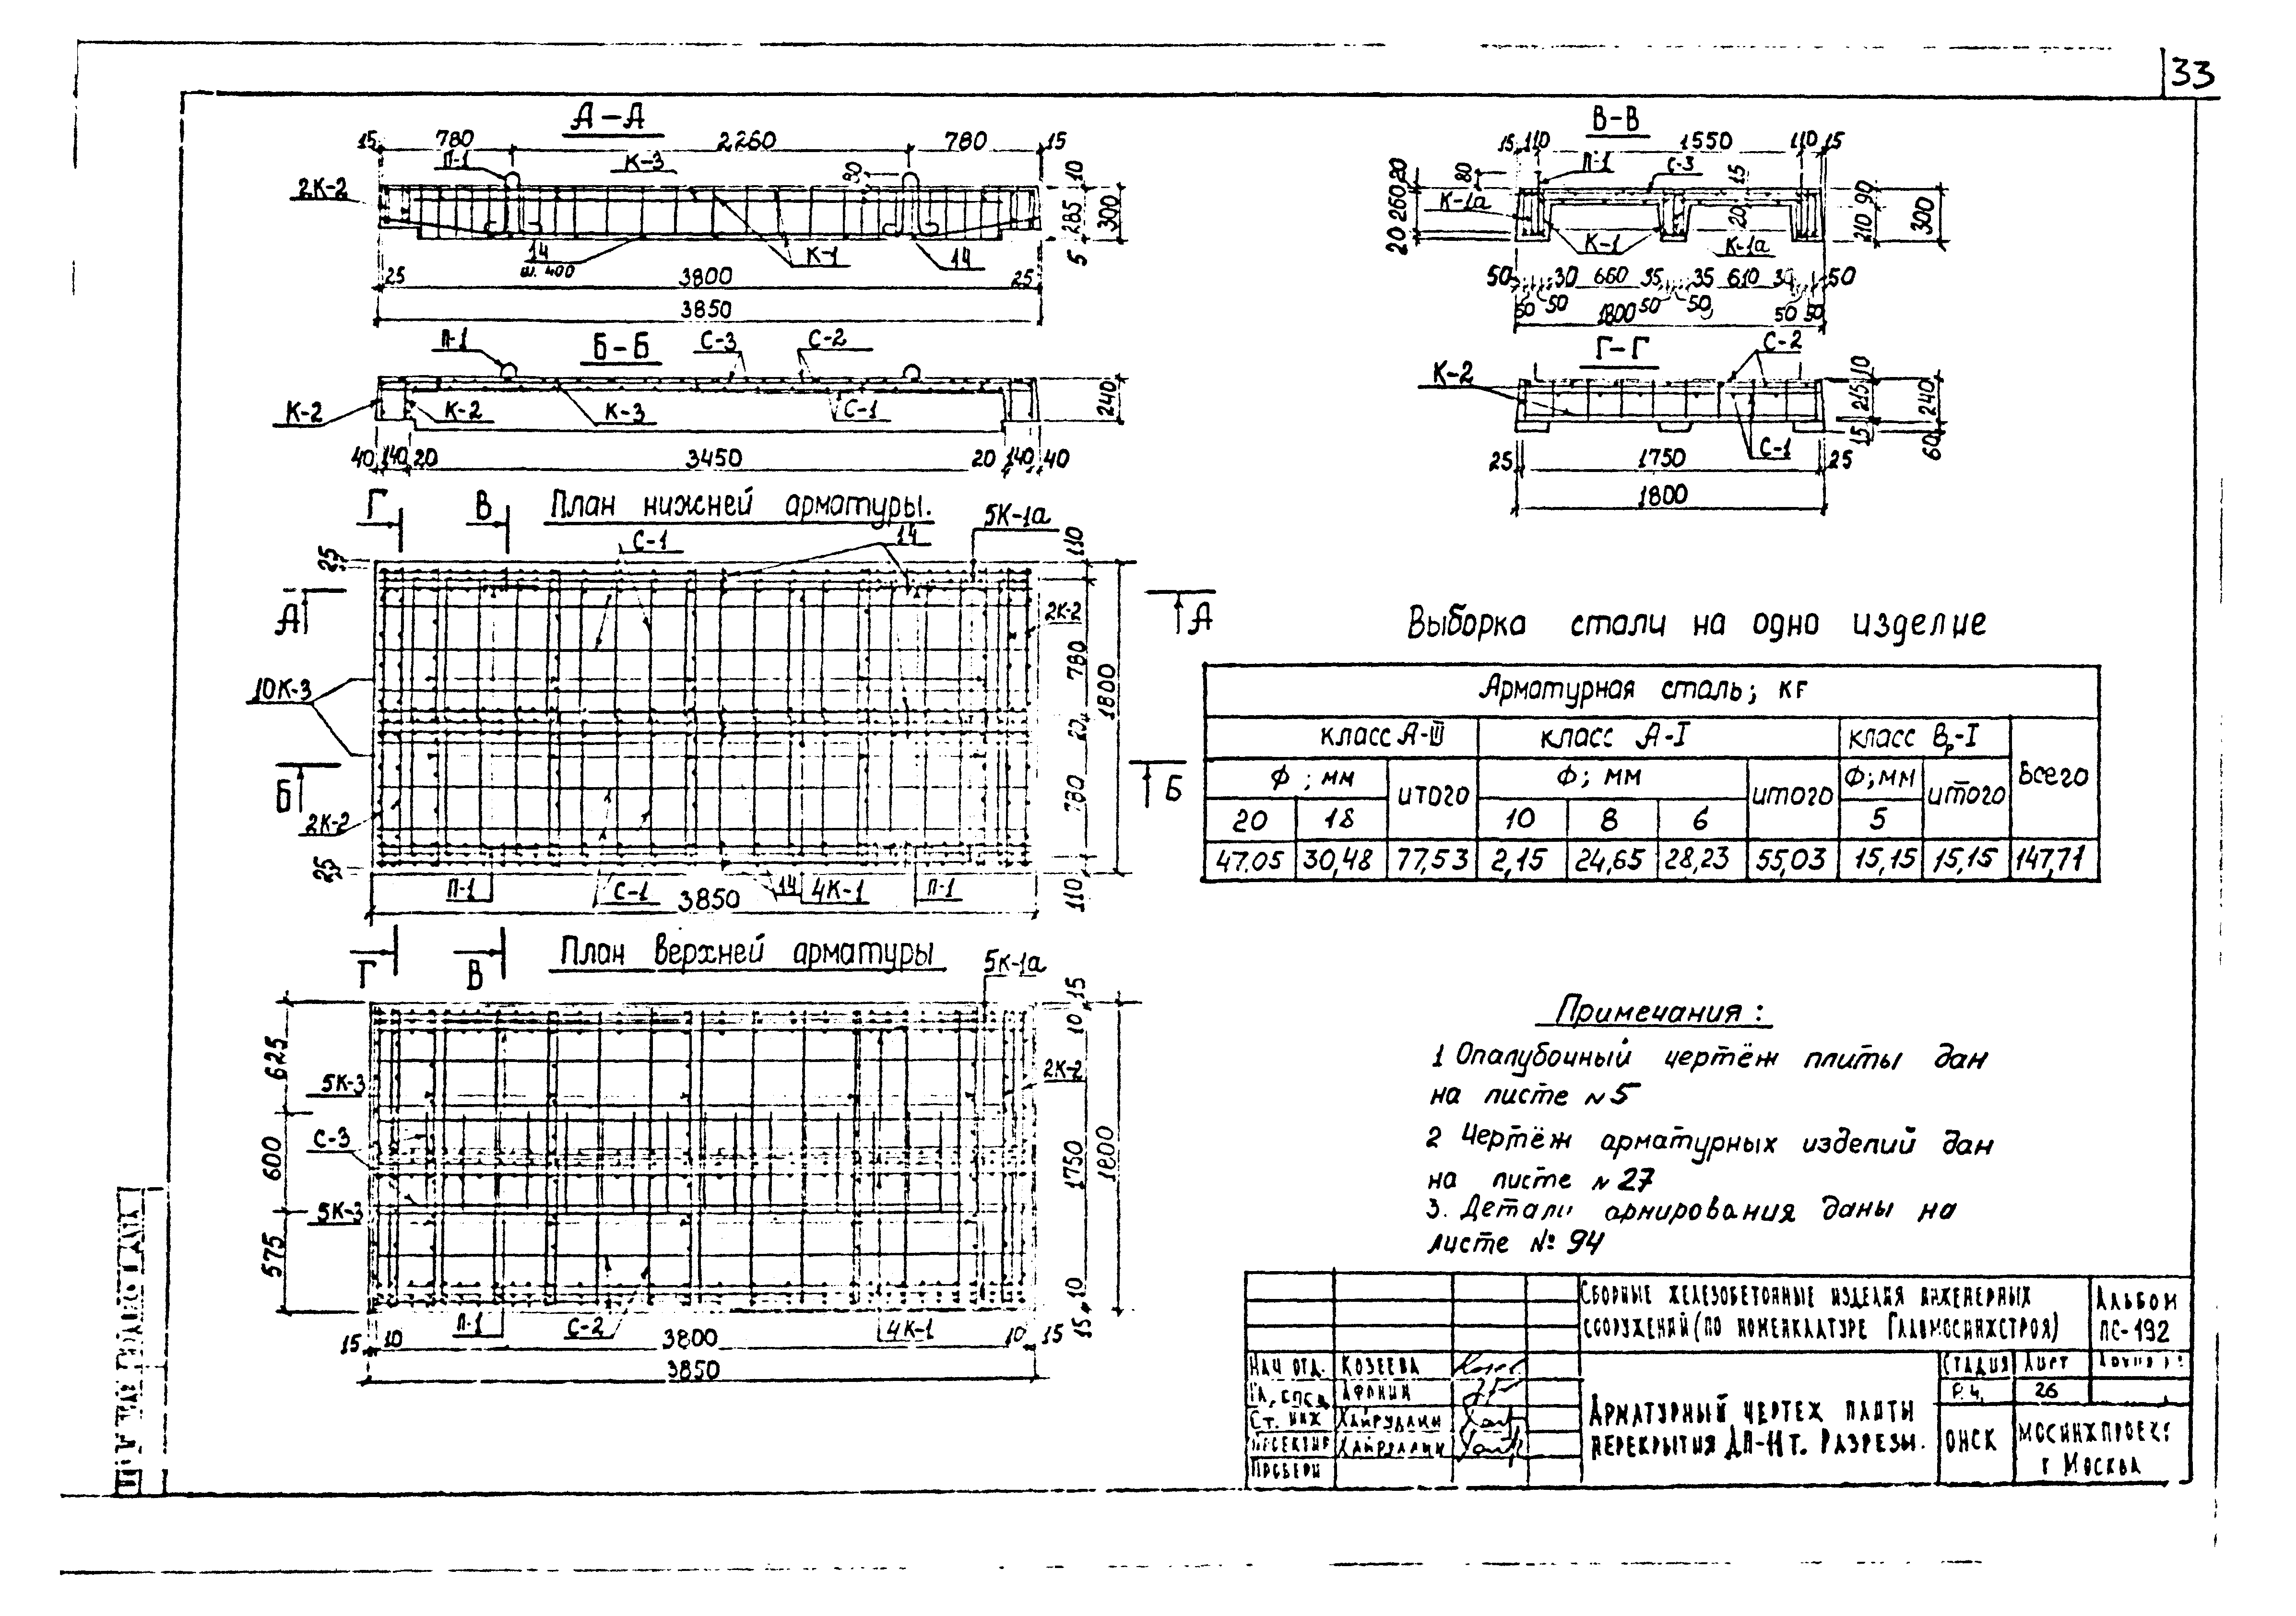 33
А–А
15 780 2260 780 15
П-1 К-3 80 10
2К-2
285 300
14 К-1 14 5
ш. 400
25 3800 25
3850
Б–Б
П-1 С-3 С-2
240
К-2 К-2 К-3 С-1
40 140 20 3450 20 140 40
В–В
15 110 1550 110 15
П-1 С-3 15
80 20 260 20
К-1а 90 210 300
20
К-1 К-1а
50 30 660 35 35 610 30 50
50 50 50 50 50 50
1800
Г–Г
С-2
К-2 10 215 240
15 60
С-1
25 1750 25
1800
План нижней арматуры.
Г В
С-1 14 5К-1а
25 110
А А
2К-2
780 1800
10К-3
780
Б Б
2К-2
25
П-1 С-1 14 4К-1 П-1 110
3850
План верхней арматуры
Г В
5К-1а 15
10
625
5К-3 2К-2
С-3
600 1750 1800
5К-3
575
10
П-1 С-2 4К-1 15
15 10 3800 10 15
3850
Выборка стали на одно изделие
Арматурная сталь; кг
класс А-III класс А-I класс Вр-I Всего
Ф ; мм итого Ф; мм итого Ф; мм итого
20 18 10 8 6 5
47.05 30,48 77,53 2,15 24,65 28,23 55,03 15,15 15,15 147,71
Примечания :
1 Опалубочный чертёж плиты дан
на листе № 5
2 Чертёж арматурных изделий дан
на листе № 27
3. Детали армирования даны на
листе № 94
Сборные железобетонные изделия инженерных
сооружений (по номенклатуре Главмосинжстроя)
Альбом
ПС-192
Нач отд. Козеева
Гл. спец. Афонин
Ст. инж Хайрудлин
Проектир Хайрудлин
Провери
Арматурный чертеж плиты
перекрытия ДП-11т. Разрезы.
Стадия Лист
Р.ч. 26
ОНСК
Мосинжпроект
г Москва